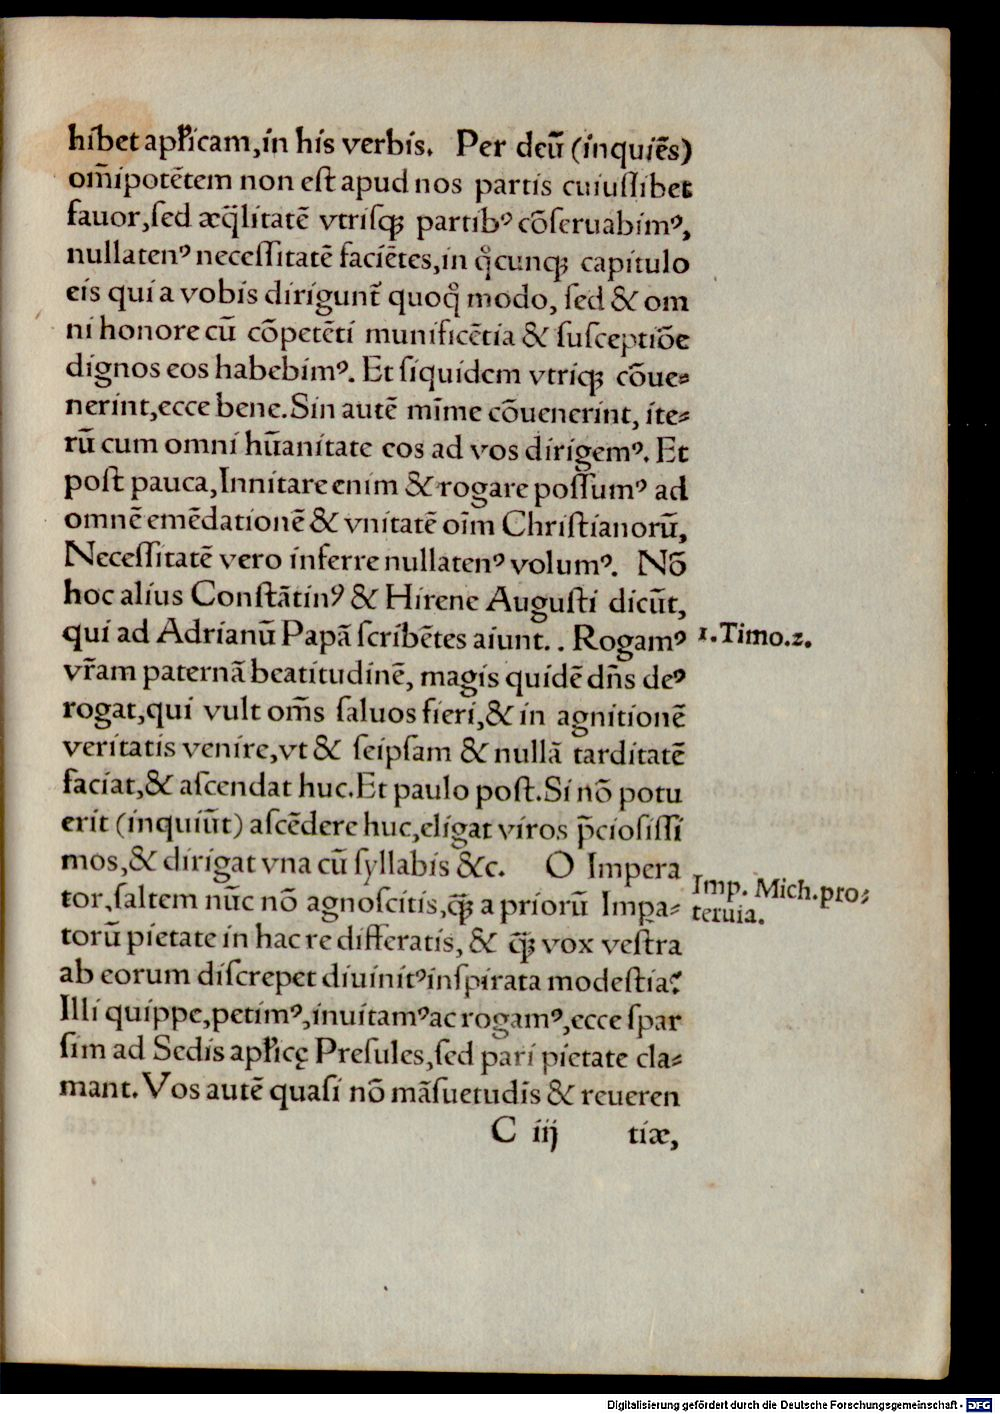 hibet apl̃icam, in his verbis. Per deũ (inquiẽs)
om̃ipotẽtem non est apud nos partis cuiuslibet
fauor, sed æq̃litatẽ vtrisq; partibꝰ cõseruabimꝰ,
nullatenꝰ necessitatẽ faciẽtes, in q̊cunq; capitulo
eis qui a vobis dirigunt̃ quoq̊ modo, sed & om
ni honore cũ cõpetẽti munificẽtia & susceptiõe
dignos eos habebimꝰ. Et siquidem vtriq; cõue⸗
nerint, ecce bene. Sin autẽ mĩme cõuenerint, ite⸗
rũ cum omni hũanitate eos ad vos dirigemꝰ. Et
post pauca, Innitare enim & rogare possumꝰ ad
omnẽ emẽdationẽ & vnitatẽ oĩm Christianorũ,
Necessitatẽ vero inferre nullatenꝰ volumꝰ. Nõ
hoc alius Constãtinꝰ & Hirene Augusti dicũt,
qui ad Adrianũ Papã scribẽtes aiunt. . Rogamꝰ
vr̃am paternã beatitudinẽ, magis quidẽ dñs deꝰ
rogat, qui vult om̃s saluos fieri, & in agnitionẽ
veritatis venire, vt & seipsam & nullã tarditatẽ
faciat, & ascendat huc. Et paulo post. Si nõ potu
erit (inquiũt) ascẽdere huc, eligat viros p̃ciosissi
mos, & dirigat vna cũ syllabis &c. O Impera
tor, saltem nũc nõ agnoscitis, q̃; a priorũ Impa⸗
torũ pietate in hac re differatis, & q̃; vox vestra
ab eorum discrepet diuinitꝰ inspirata modestia?
Illi quippe, petimꝰ, inuitamꝰ ac rogamꝰ, ecce spar
sim ad Sedis apl̃icę Presules, sed pari pietate cla⸗
mant. Vos autẽ quasi nõ mãsuetudis & reueren
C iij tiæ,
1. Timo. 2.
Imp. Mich. pro⸗
teruia.
Digitalisierung gefördert durch die Deutsche Forschungsgemeinschaft - DFG